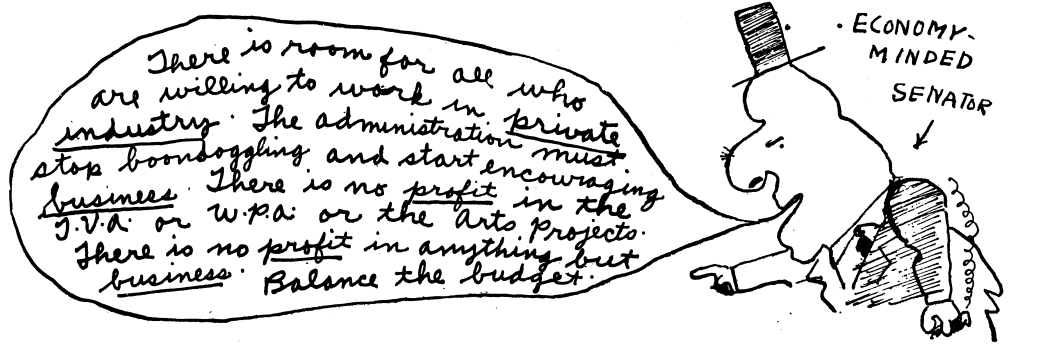 There is room for all who
are willing to work in private
industry. The administration must
stop boondoggling and start encouraging
business. There is no profit in the
T.V.A. or W.P.A. or the Arts Projects.
There is no profit in anything but
business. Balance the budget.
ECONOMY-
MINDED
SENATOR